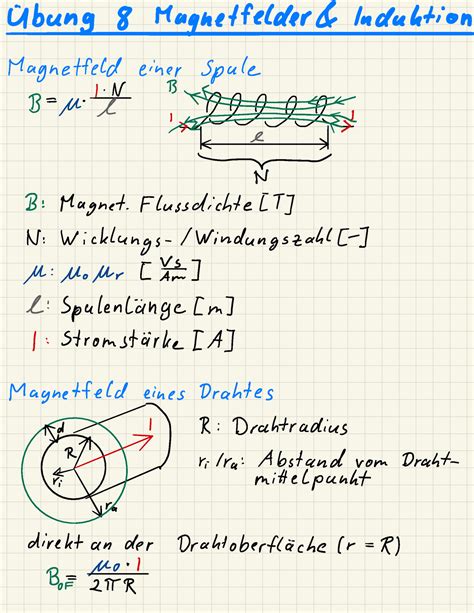 Übung 8 Magnetfelder & Induktion
Magnetfeld einer Spule
B = μ · I · N / l
B
I
I
l
N
B: Magnet. Flussdichte [T]
N: Wicklungs-/Windungszahl [-]
μ: μ₀ μr [Vs/Am]
l: Spulenlänge [m]
I: Stromstärke [A]
Magnetfeld eines Drahtes
d
R
I
ri
ra
R: Drahtradius
ri/ra: Abstand vom Draht-
mittelpunkt
direkt an der Drahtoberfläche (r = R)
B₀F = μ₀ · I / 2πR